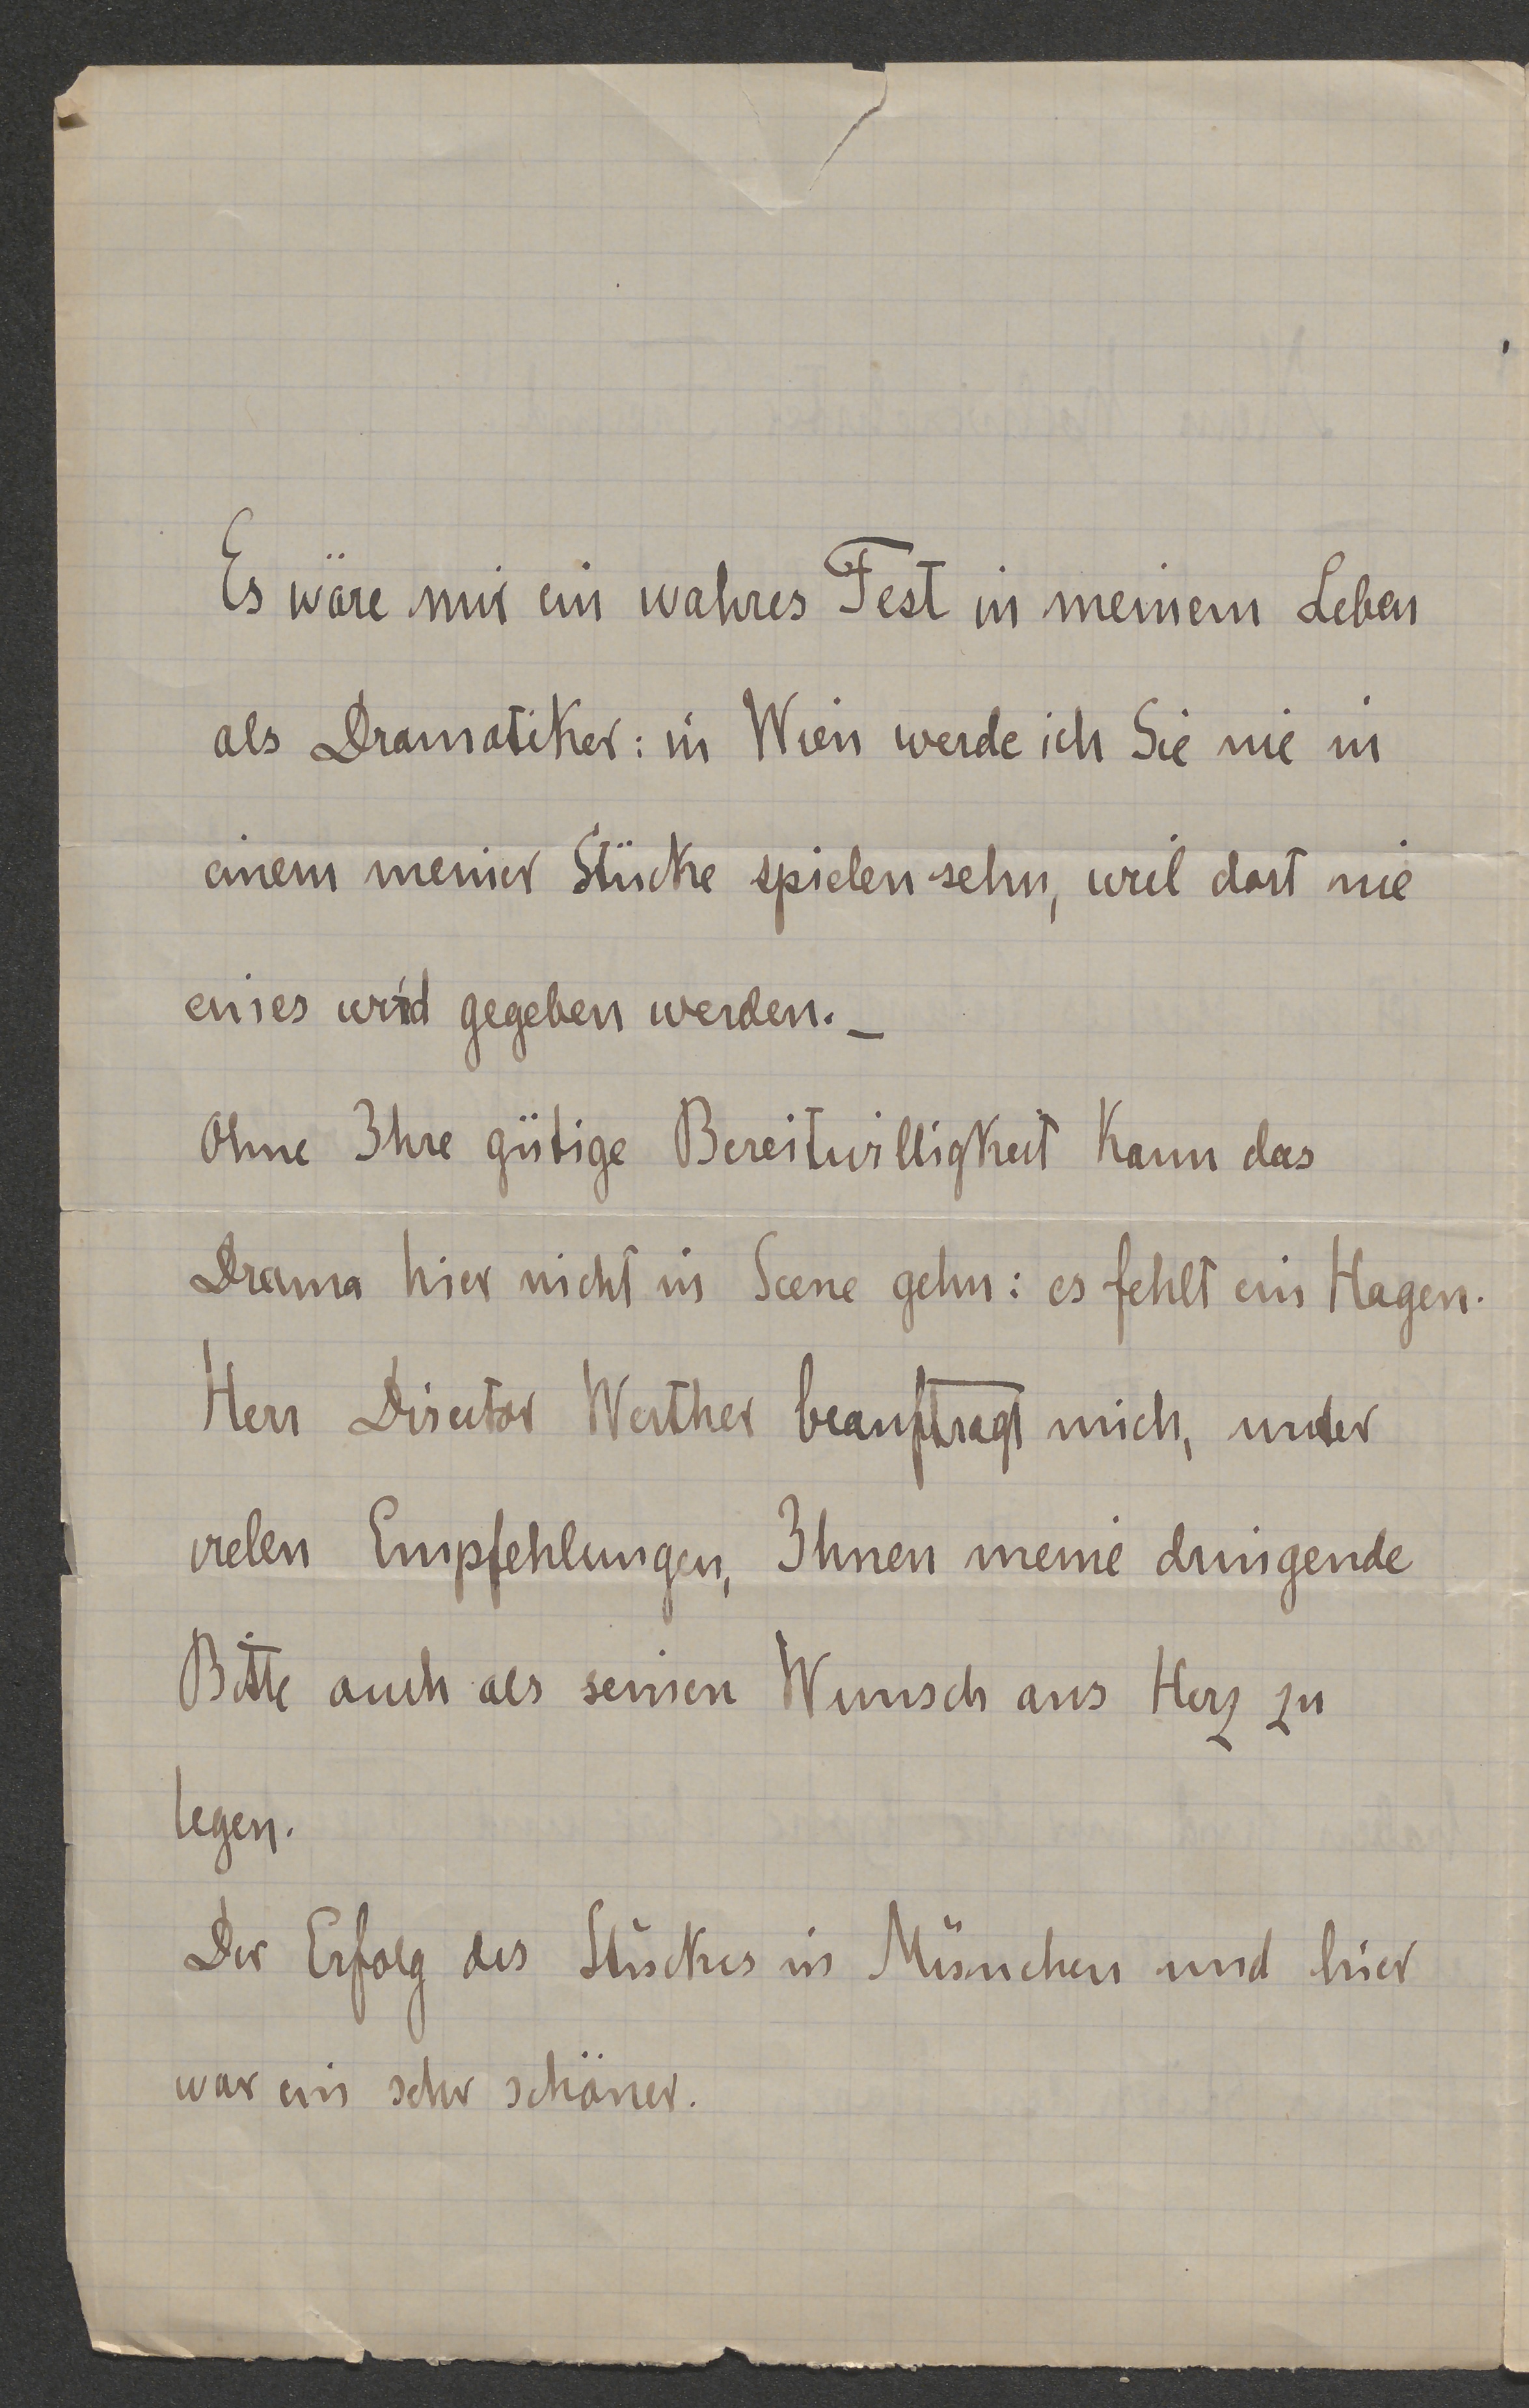 Es wäre mir ein wahres Fest in meinem Leben
als Dramatiker: in Wien werde ich Sie nie in
einem meiner Stücke spielen sehn, weil dort nie
eines wird gegeben werden. _
Ohne Ihre gütige Bereitwilligkeit kann das
Drama hier nicht in Scene gehn: es fehlt ein Hagen.
Herr Director Werther beauftragt mich, unter
vielen Empfehlungen, Ihnen meine dringende
Bitte auch als seinen Wunsch ans Herz zu
legen.
Der Erfolg des Stückes in München und hier
war ein sehr schöner.